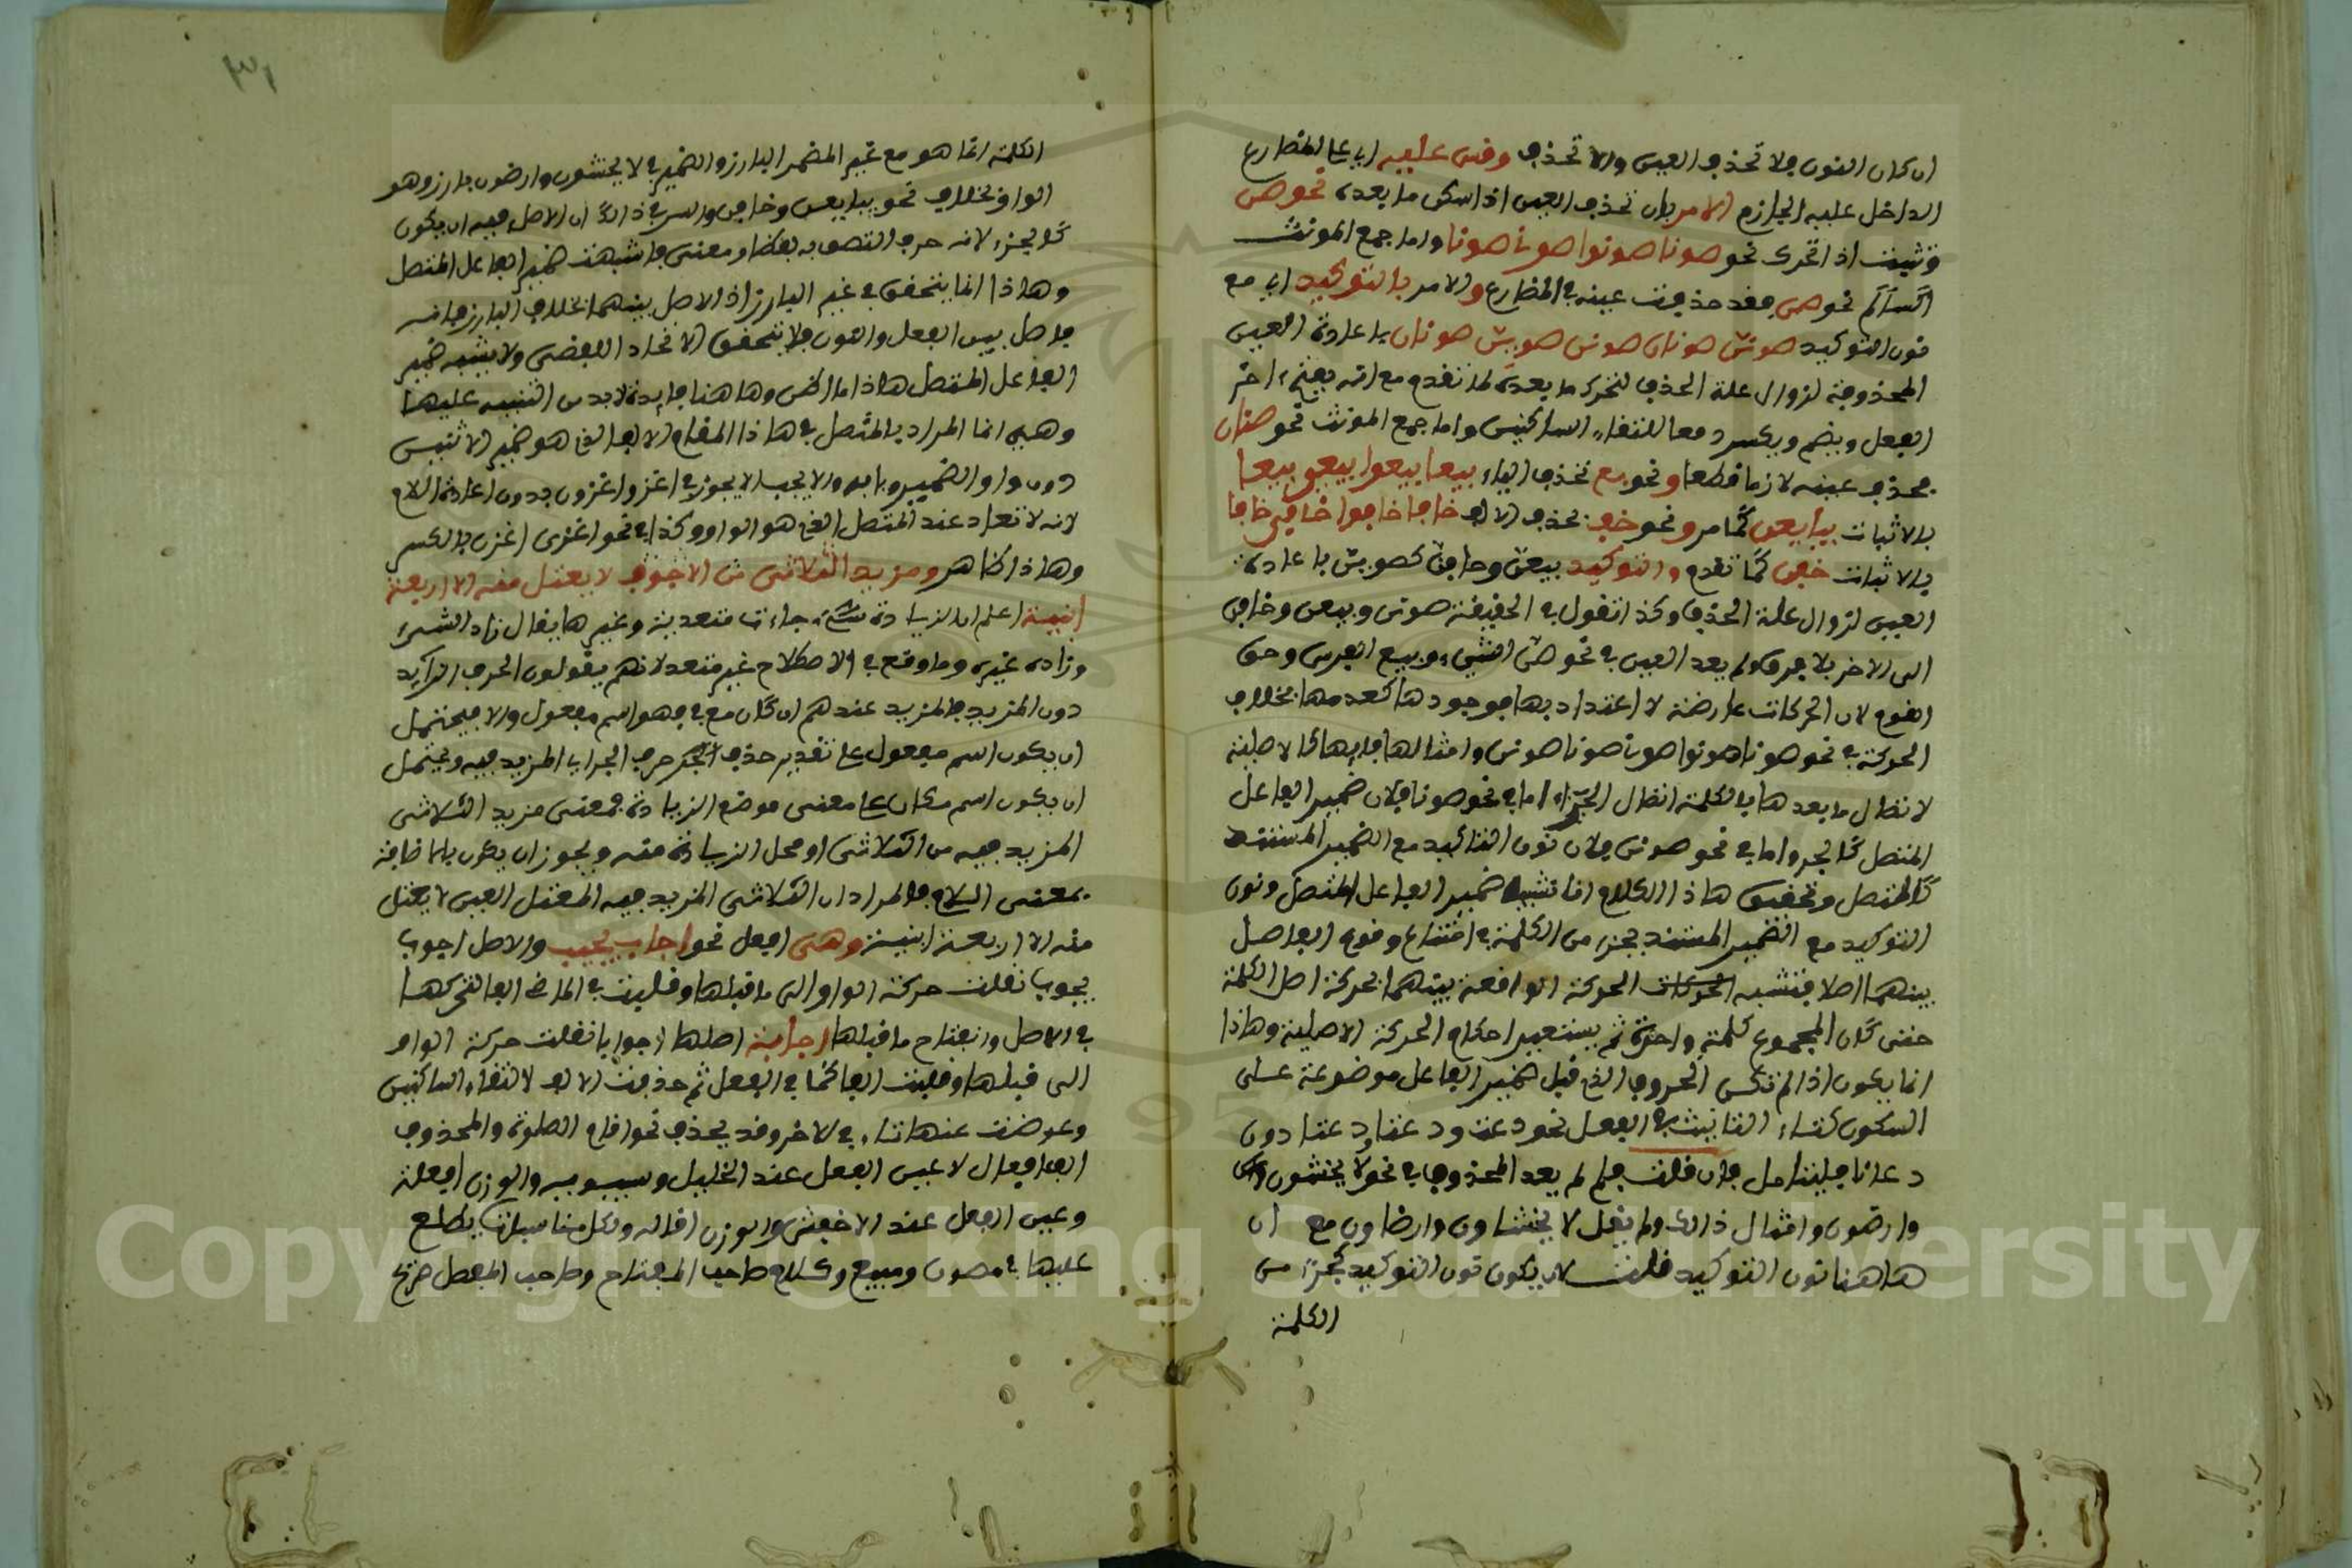 ان كان النون فلا تحذف العين والا تحذف وقس عليه اي على المضارع
الداخل عليه الجازم الامر بان تحذف العين اذا سكن ما بعده نحو صن
وتثبت اذا تحرك نحو صونا صونوا صوني صونا واما جمع المونث
نحو صن فقد حذفت عينه في المضارع والامر بالتوكيد اي مع
نون التوكيد صونن صونان صونن صونن صونان باعادة العين
المحذوفة لزوال علة الحذف لتحرك ما بعده لما تقدم مع انه يفتح اخر
الفعل ويضم ويكسر دفعا لالتقاء الساكنين واما جمع المونث نحو صنان
فحذف عينه لازما قطعا ونحو بع تحذف الياء بيعا بيعوا بيعي بيعا
بالاثبات بيا بعن كما مر ونحو خف بحذف الالف خافا خافوا خافي خافا
بالاثبات خفن كما تقدم والتوكيد بيعن وخافن كصونن باعادة
العين لزوال علة الحذف وكذا تقول في الخفيفة صونن وبيعن وخافن
الى الاخر بلا فرق ولم يعد العين في نحو صن الشيء وبيع الفرس وخف
القوم لان الحركات عارضة لا اعتداد بها فوجودها كعدمها بخلاف
الحركة في نحو صونا صونوا صوني صونا صونن وامثالها فانها كالاصلية
لاتصال ما بعدها بالكلمة اتصال الجزء اما في نحو صونا فلان ضمير الفاعل
المتصل كالجزء واما في نحو صونن فلان نون التاكيد مع الضمير المستتر
كالمتصل وتحقيق هذا الكلام انا نشبه ضمير الفاعل المتصل ونون
التوكيد مع الضمير المستتر بجزء من الكلمة في امتناع وقوع الفاصل
بينهما اصلا فنشبه الحركات الحركة الواقعة بينهما بحركة اصل الكلمة
حتى كان المجموع كلمة واحدة ثم يستعير احكام الحركة الاصلية وهاذا
انما يكون اذا لم تكن الحروف الذي قبل ضمير الفاعل موضوعة على
السكون كتاء التانيث في الفعل نحو دعت ود عتا ود عتا دون
دعاتا فليتامل فان قلت فلم لم يعد المحذوف في نحو لا يخشون
وارضون وامثال ذالك ولم يقل لا يخشاون وارضاون مع ان
هاهنا نون التوكيد قلت لان يكون نون التوكيد كجزء من
الكلمة
٣١
الكلمة انما هو مع غير المضمر البارز والضمير في لا يخشون وارضون بارز وهو
الواو بخلاف نحو بيا بيعن وخافن والسر في ذالك ان الاصل فيه ان يكون
كالجزء لانه حرف التصق به لفظا ومعنى فاشبهت ضمير الفاعل المتصل
وهاذا انما يتحقق في غير البارز اذ لا فصل بينهما بخلاف البارز فانه
فاصل بين الفعل والنون فلا يتحقق الاتحاد اللفظي ولا يشبه ضمير
الفاعل المتصل هاذا ما اكن وهاهنا فايدة لابد من التنبيه عليها
وهي انما المراد بالمتصل في هاذا المقام الالف الذي هو ضمير الاثنين
دون واو الضمير ويائه والا يجب الا يجوز في اغزوا اغزون بدون اعادة اللام
لانه لا تعاد عند المتصل الذي هو الواو وكذا في نحو اغزي اغزن بالكسر
وهاذا ظاهر ومزيد الثلاثي من الاجوف لا يعتل منه الا اربعة
ابنية اعلم ان الزيادة جاءت متعدية وغيرها يقال زاد الشيء
وزاده غيره وما وقع في الاصطلاح غير متعد لانهم يقولون الحرف الزايد
دون المزيد فالمزيد عندهم ان كان مع في فهو اسم مفعول والا فيحتمل
ان يكون اسم مفعول على تقدير حذف حرف الجر اي المزيد فيه ويحتمل
ان يكون اسم مكان على معنى موضع الزيادة فمعنى مزيد الثلاثي
المزيد فيه من الثلاثي او محل الزيادة منه ويجوز ان يكون بالاضافة
بمعنى اللام فالمراد ان الثلاثي المزيد فيه المعتل العين لا يعتل
منه الا اربعة ابنية وهي افعل نحو اجاب يجيب والاصل اجوب
يجوب نقلت حركة الواو الى ما قبلها وقلبت في الماضي الفا لتحركها
في الاصل وانفتاح ما قبلها اجابة اصلها اجوابا نقلت حركة الواو
الى قبلها وقلبت الفا كما في الفعل ثم حذفت الالف لالتقاء الساكنين
وعوضت عنها تاء في الاخر وقد يحذف نحو اقام الصلوة والمحذوف
الف افعال لا عين الفعل عند الخليل وسيبويه والوزن افعلة
وعين الفعل عند الاخفش والوزن افالة ولكل مناسبات يطلع
عليها في مصون ومبيع وكلام صاحب المفتاح وصاحب المفصل صريح
Copyright © King Saud University